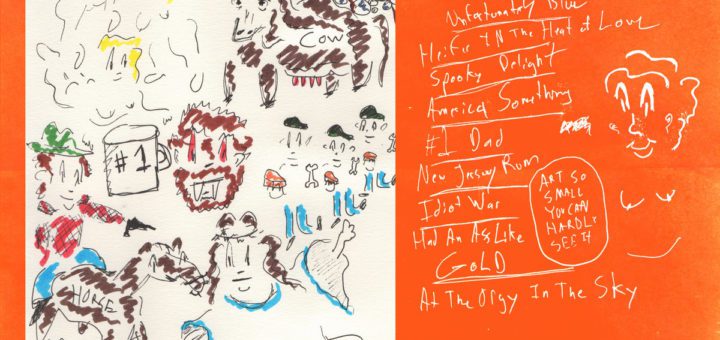 COW
#1
HORSE
Unfortunately Blue
Heifer IN The Heat of Love
Spooky Delight
America Something
#1 Dad
New Jersey Rum
Idiot War
Had An Ass Like
GOLD
At The Orgy In The Sky
ART SO
SMALL
YOU CAN
HARDLY
SEE IT